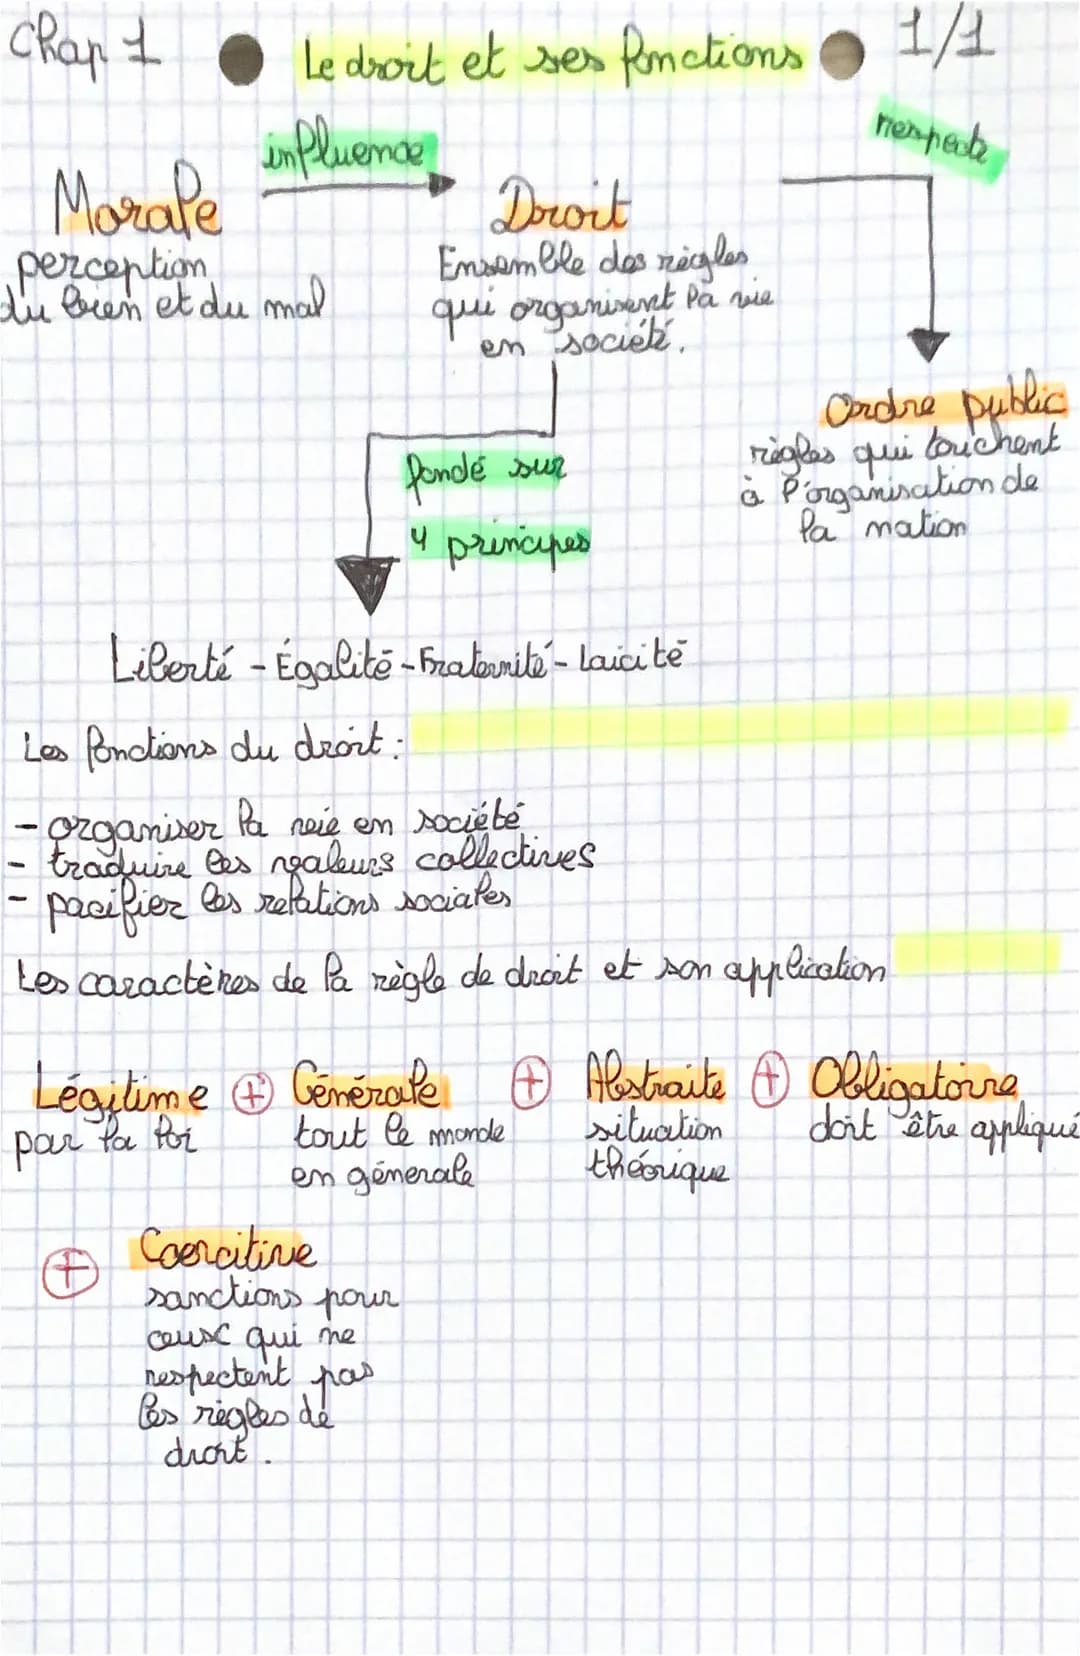 Chap 1
Le droit et ses fonctions
1/1
influence
respecte
Morale
perception
du bien et du mal
Droit
Ensemble des règles
qui organisent la vie
en société.
Ordre public
règles qui touchent
à l'organisation de
la nation
fondé sur
4 principes
Liberté - Égalité - Fraternité - Laicité
Les fonctions du droit :
- organiser la vie en société
- traduire les valeurs collectives
- pacifier les relations sociales
Les caractères de la règle de droit et son application
Légitime + Générale + Abstraite + Obligatoire
par la loi
tout le monde
en génerale
situation
théorique
doit être appliqué
+ Coercitive
sanctions pour
ceux qui ne
respectent pas
les règles de
droit.